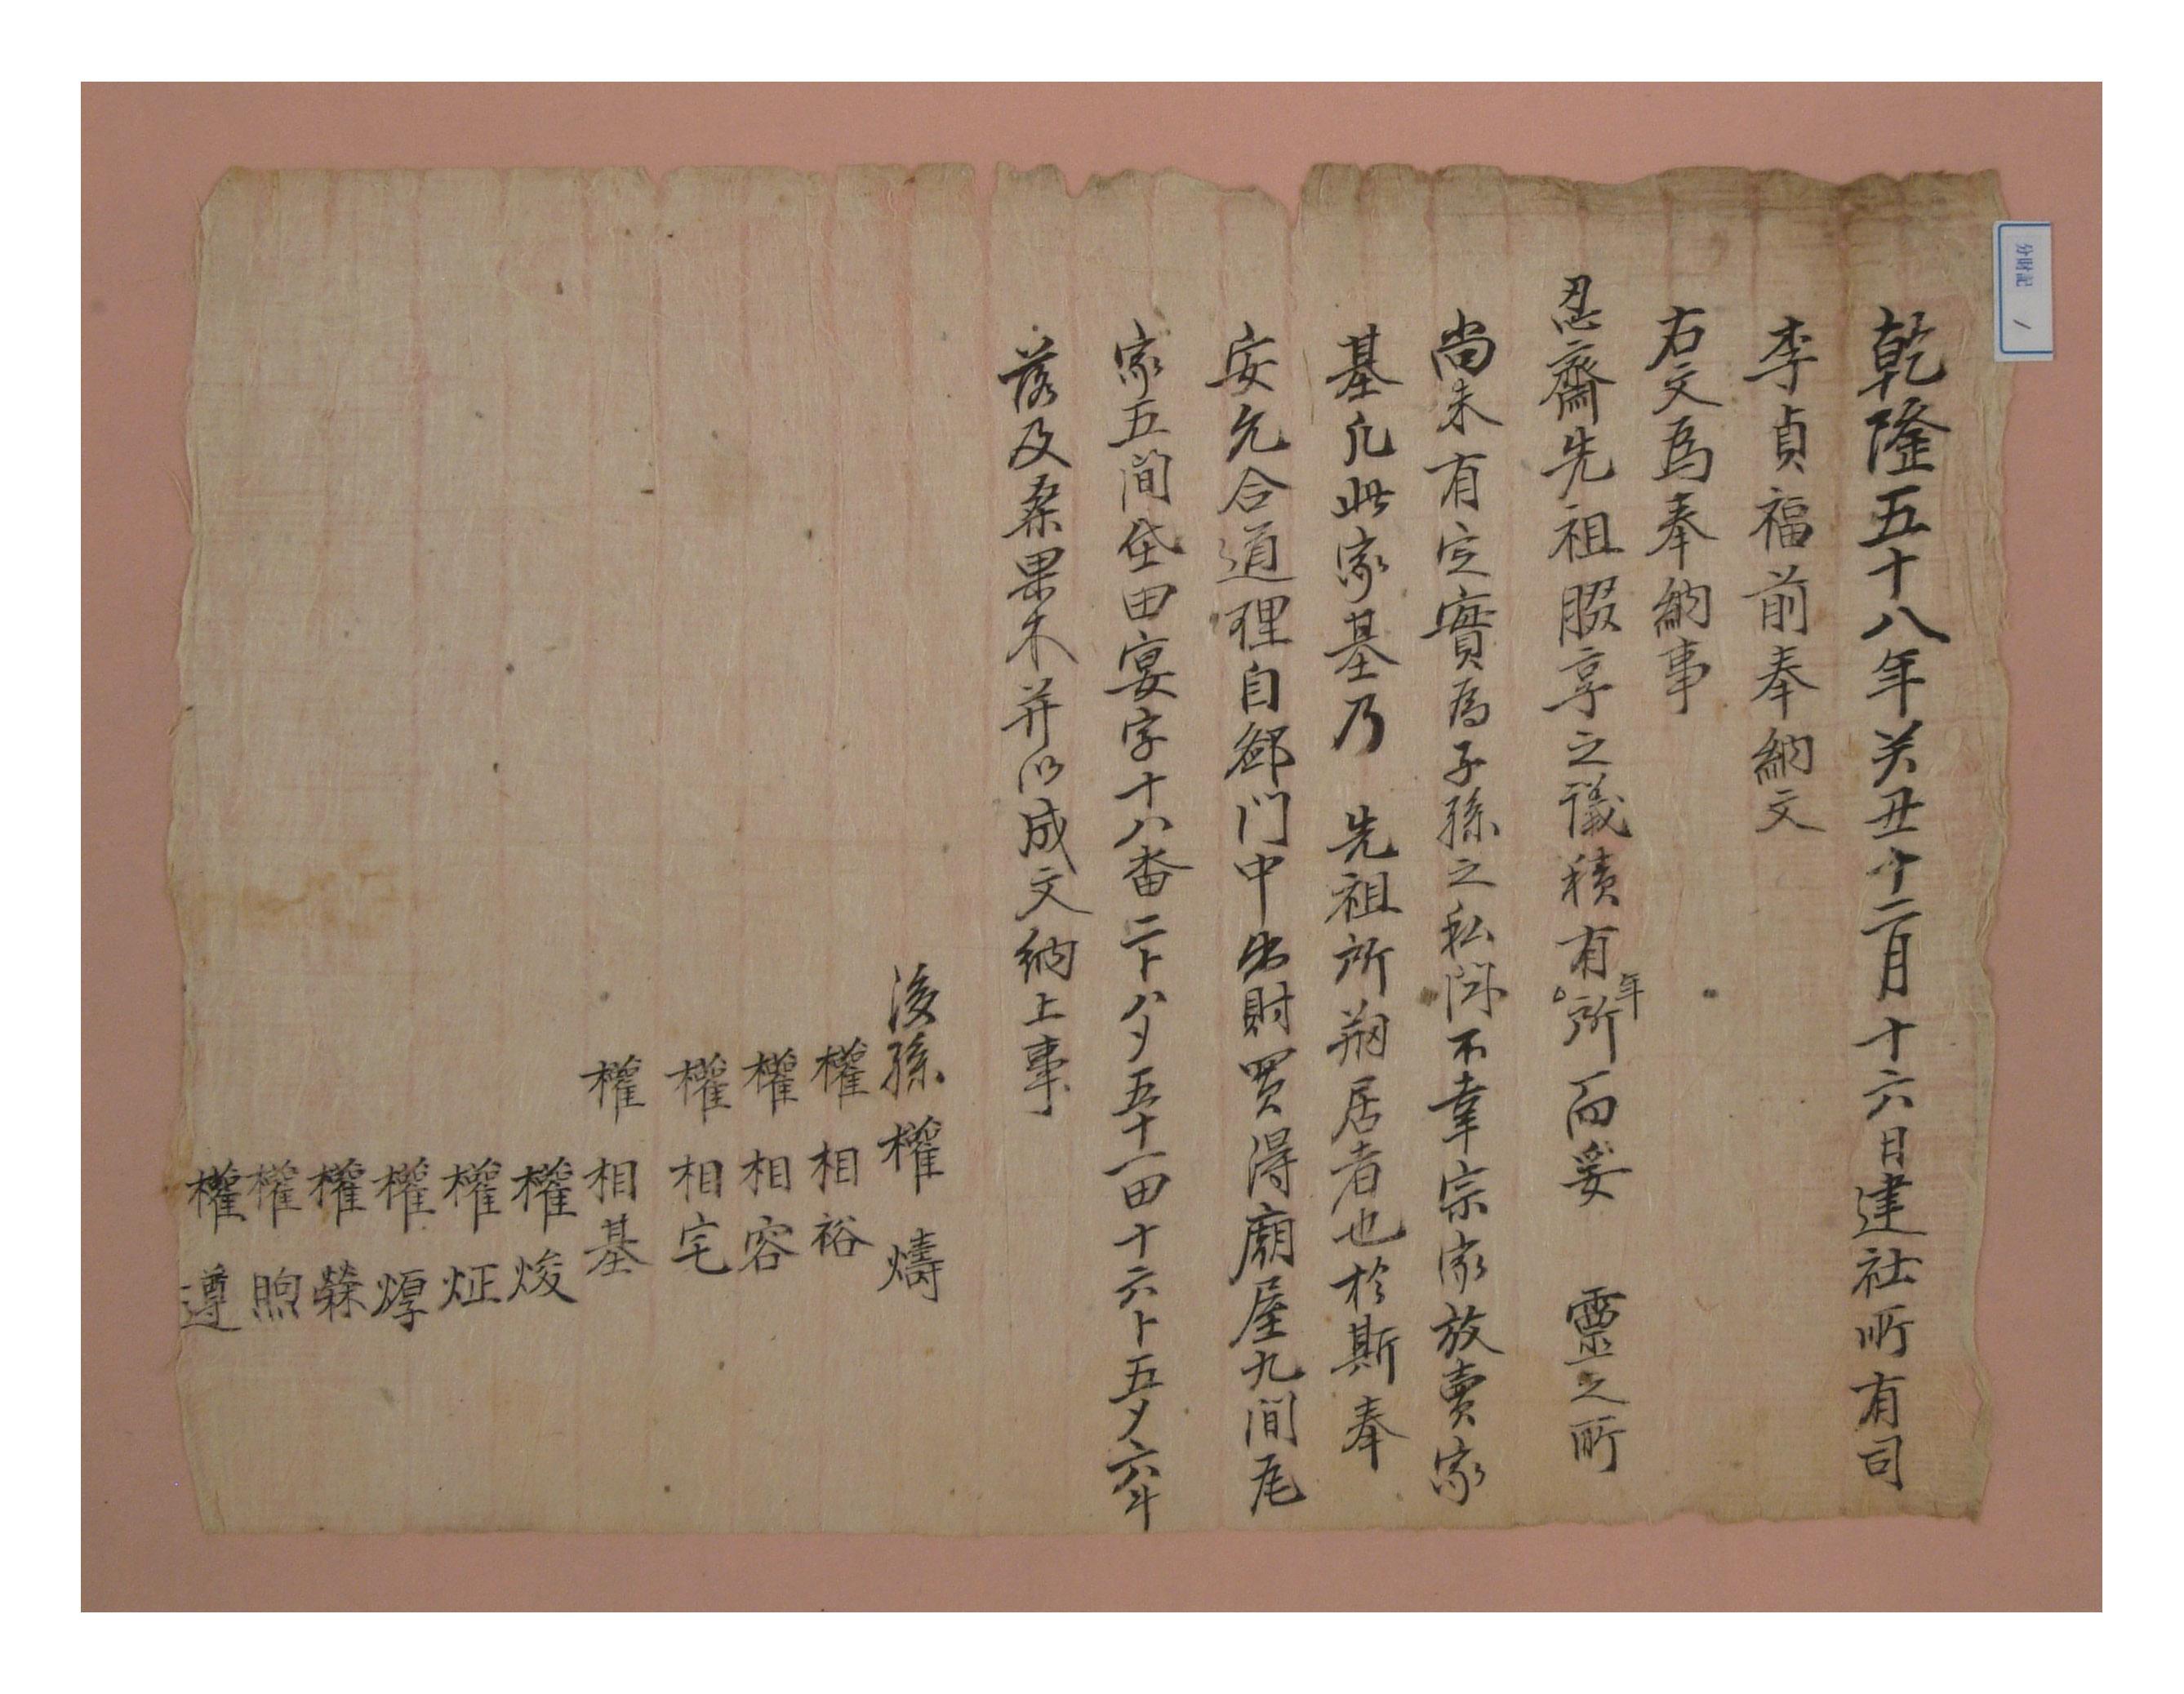 分財記 1
乾隆五十八年癸丑十二月十六日建社所有司
李貞福前奉納文
右文爲奉納事
忍齋先祖腏享之議積有年所而妥 靈之所
尚未有定實為子孫之私悶不幸宗家放賣家
基凡此家基乃 先祖所刱居者也於斯奉
安允合道理自鄙门中出財買得廟屋九間瓦
家五間垈田宴字十八畨二卜八夕五十一田十六卜五夕六斗
落及桑果木并以成文納上事
後孫 權 燽
權 相 裕
權 相 容
權 相 宅
權 相 基
權 焌
權 炡
權 焞
權
權 煦
權 遵